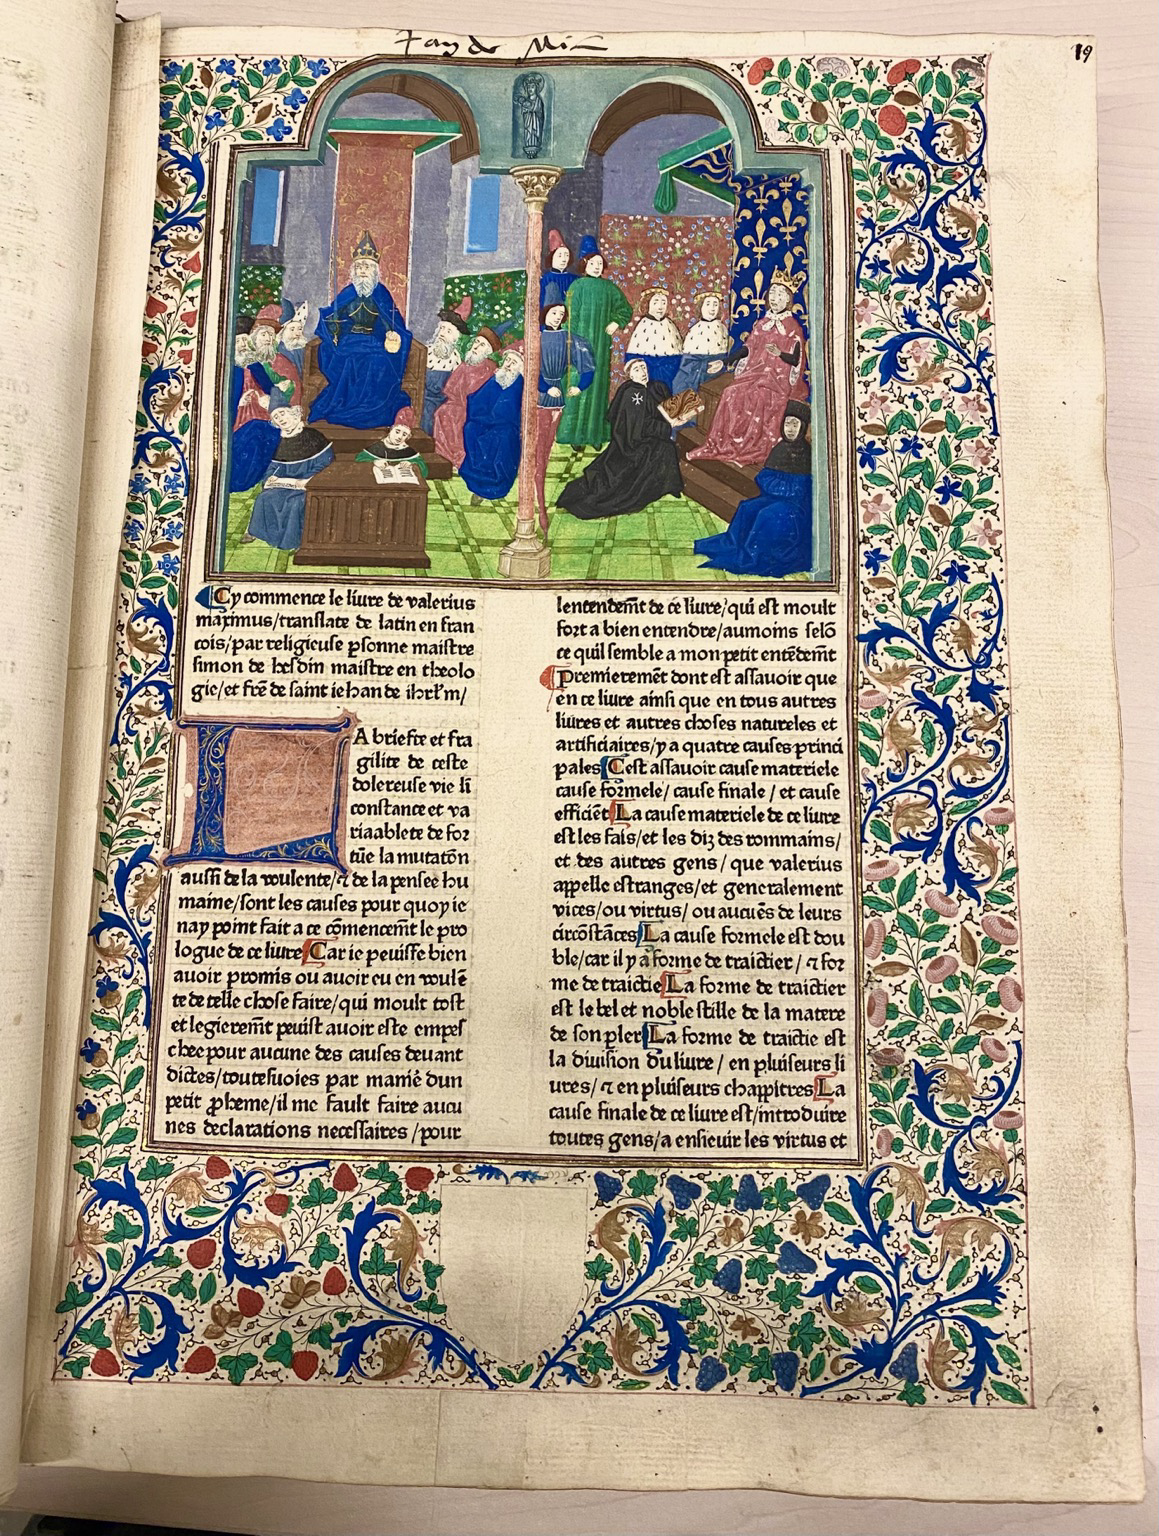 19
Cy commence le liure de valerius
maximus/translate de latin en fran
cois/par religieuse p̱sonne maistre
simon de hesdin maistre en theolo
gie/et fre᷑ de saint iehan de ihrl̃m/
LA briefte et fra
gilite de ceste
dolereuse vie li᷑
constance et va
riaablete de for
tūe la mutatōn
aussi de la voulente/⁊ de la pensee hu
maine/sont les causes pour quoy ie
nay point fait a ce cōmencem̄t le pro
logue de ce liure Car ie peusse bien
auoir promis ou auoir eu en voulē
te de telle chose faire/qui moult tost
et legierem̄t peust auoir este empes
chee pour aucune des causes deuant
dictes/toutesuoies par manie᷑ dun
petit ꝓheme/il me fault faire aucu
nes declarations necessaires/pour
lentendem̄t de ce liure/qui est moult
fort a bien entendre/aumoins selō
ce quil semble a mon petit entēdem̄t
Premieremēt dont est assauoir que
en ce liure ainsi que en tous autres
liures et autres choses natureles et
artificiaires/y a quatre causes princi
pales Cest assauoir cause materiele
cause formele/cause finale/et cause
efficiēt La cause materiele de ce liure
est les fais/et les diz des rommains/
et des autres gens/que valerius
appelle estranges/et generalement
vices/ou virtus/ou aucuēs de leurs
circōstāces La cause formele est dou
ble/car il y a forme de traictier/⁊ for
me de traictie La forme de traictier
est le bel et noble stille de la matere
de son p̱ler La forme de traictie est
la diuision du liure/en pluiseurs li
ures/⁊ en pluiseurs chappitres La
cause finale de ce liure est/introduire
toutes gens/a ensieuir les virtus et